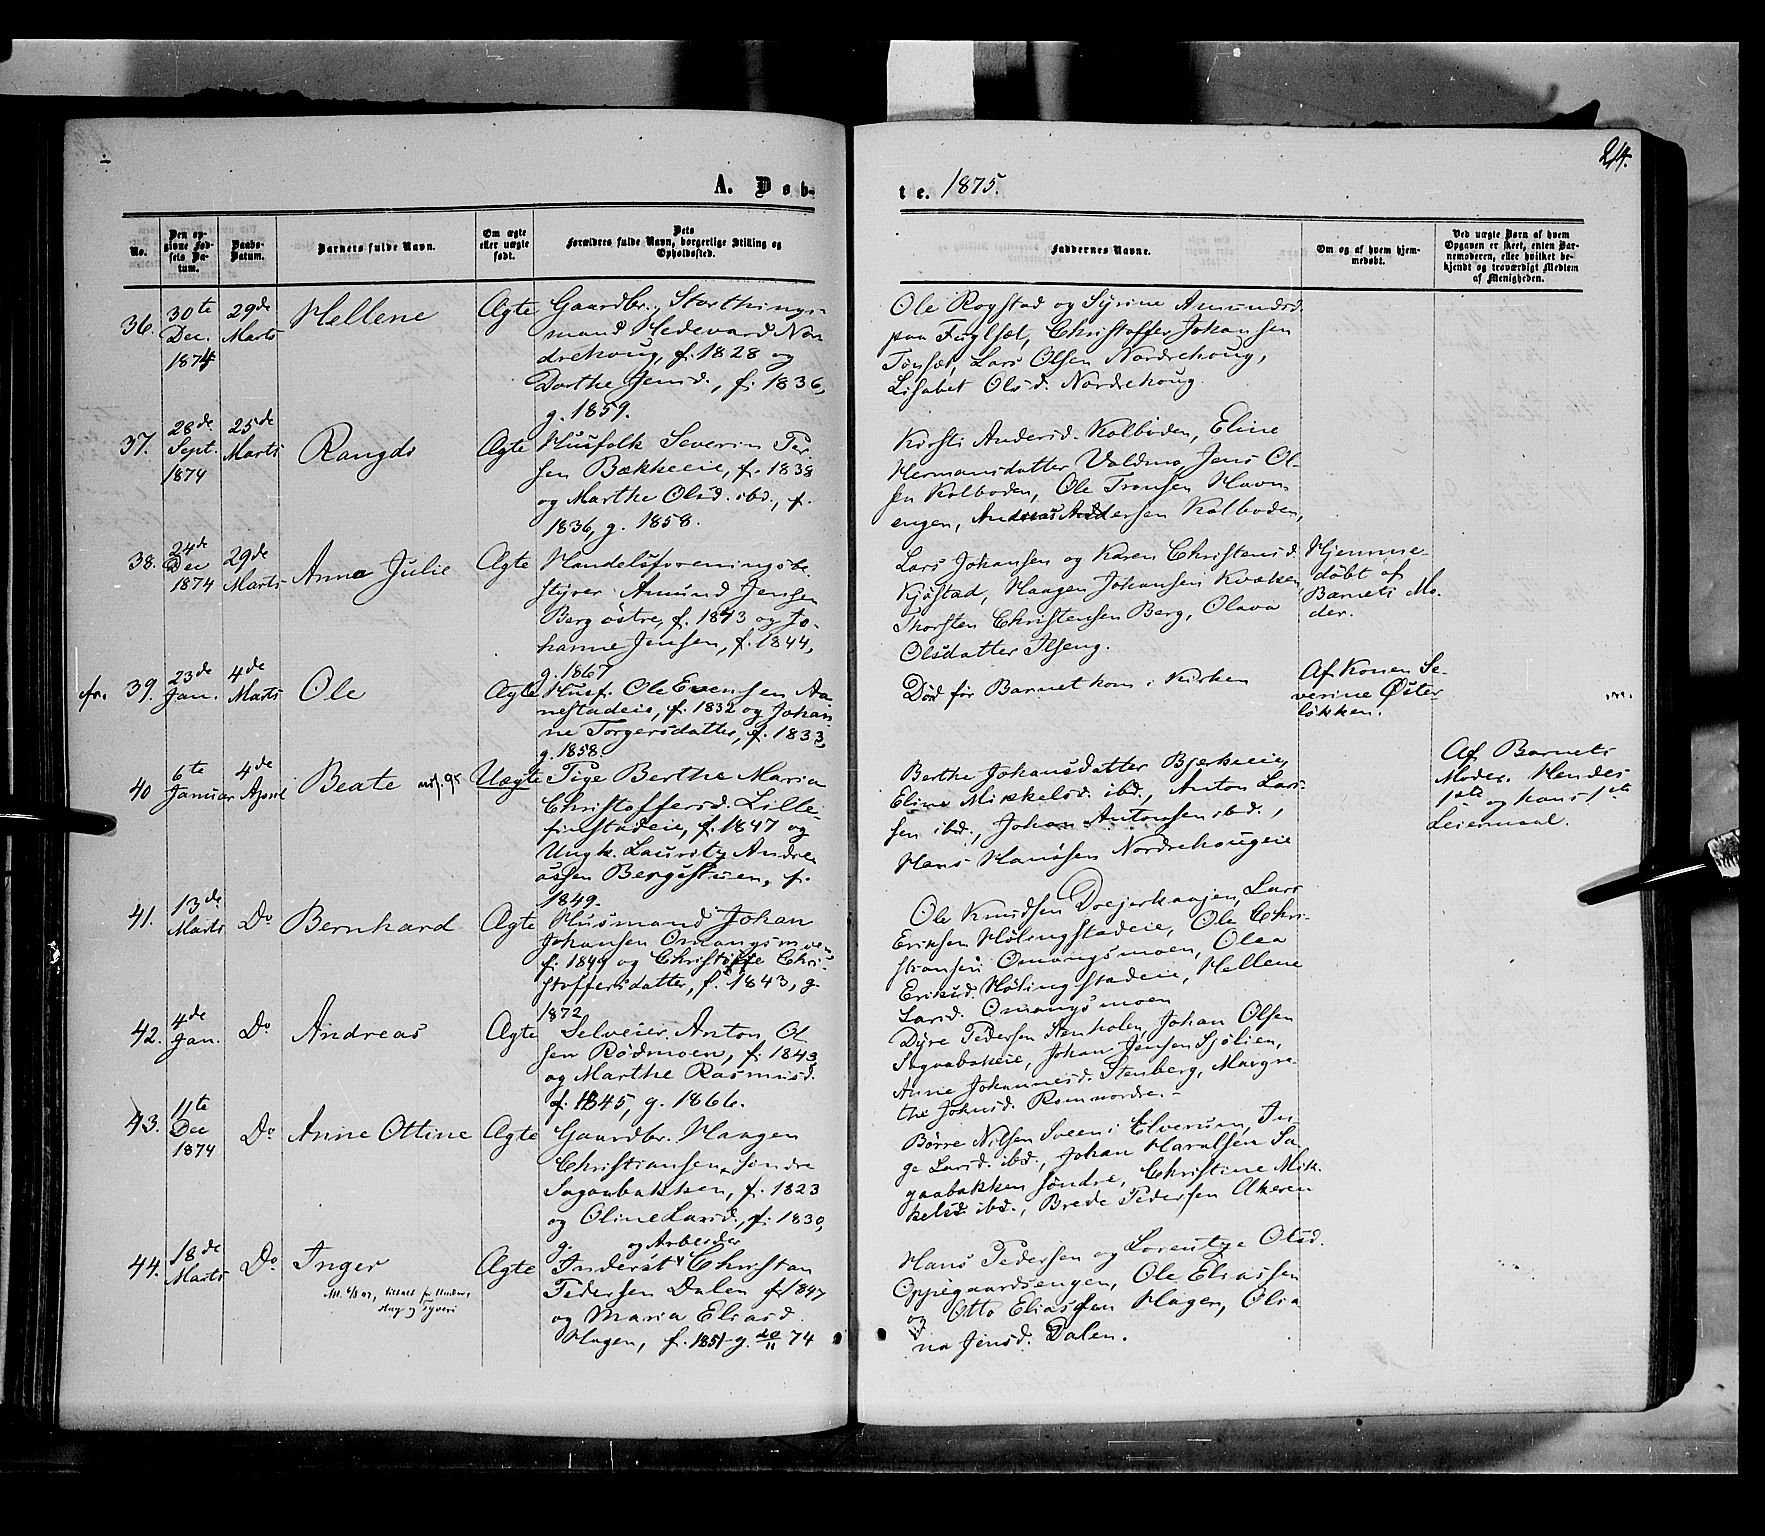 24.
A. Døb-
te. 1875.
No.
Den opgivne Fødsels Datum.
Daabs-Datum.
Barnets fulde Navn.
Om ægte eller uægte født.
Dets Forældres fulde Navn, borgerlige Stilling og Opholdssted.
Faddernes Navne.
Om og af hvem hjemmedøbt.
Ved uægte Børn af hvem Opgaven er skeet, enten Barnemoderen, eller hvilket bekjendt og troværdigt Medlem af Menigheden.
36.
30te
Dec.
1874
29de
Marts
Hellene
Ægte
Gaardbr., Storthings-
mand Hedevard Nor
drehoug, f. 1828 og
Dorthe Jensd., f. 1836,
g. 1859.
Ole Rogstad og Syrine Amundsd.
paa Fuglset, Christoffer Johansen
Tonset, Lars Olsen Nordrehoug,
Lisabet Olsd. Nordrehoug.
37.
28de
Sept.
1874
25de
Marts
Rangdi
Ægte
Husfolk Severin Per-
sen Bækkeeie, f. 1838
og Marthe Olsd. ibd., f.
1836, g. 1858.
Kirsti Andersd. Kolboden, Eline
Hermansdatter Valdmo, Jens Ol-
sen Kolboden, Ole Tronsen Havn-
engen, Andreas Andersen Kolboden,
38.
24de
Dec
1874
29de
Marts
Anna Julie
Ægte
Handelsforeningsbe-
styrer Amund Jensen
Berg østre, f. 1843 og Jo-
hanne Jensen, f. 1844,
g. 1867
Lars Johansen og Karen Christensd.
Kjøstad, Haagen Johansen Kvæken
Thorsten Christensen Berg, Olava
Olsdatter Ilseng.
Hjemme-
døbt af
Barnets Mo-
der.
39.
23de
Jan.
4de
Marts
Ole
Ægte
Husf. Ole Evensen Aa-
nestadeie, f. 1832 og Johan-
ne Torgersdatter, f. 1833,
g. 1858.
Død før Barnet kom i Kirken
Af Konen Se-
verine Øster
løkken.
40
6te
Januar
4de
April
Beate
Uægte
Pige Berthe Maria
Christoffersd. Lille-
finstadeie, f. 1847 og
Ungk. Lauritz Andre
assen Bergstuen, f.
1849.
Berthe Johansdatter Bjerkeeie,
Eline Mikkelsd. ibd., Anton Lar-
sen ibd., Johan Antonsen ibd.,
Hans Hansen Nordrehougeie
Af Barnets
Moder. Hendes
1ste og hans 1ste
Leiermaal.
41.
13de
Marts
Do
Bernhard
Ægte
Husmand Johan
Johansen Omangsmoen
f. 1849 og Christoffe Chri-
stoffersdatter, f. 1843, g.
1872
Ole Knudsen Drejerhaugen, Lars
Eriksen Hølingstadeie, Ole Chri-
stiansen Omangsmoen, Olea
Eriksd. Hølingstadeie, Hellene
Larsd. Omangsmoen
42.
4de
Jan.
Do
Andreas
Ægte
Selveier Anton Ol
sen Rødmoen, f. 1843
og Marthe Rasmusd.
f. 1845, g. 1866.
Dyre Pedersen Stenholen, Johan Olsen
Sagaabakeie, Johan Jensen Sjølien,
Anne Johannesd. Stenberg, Margre-
the Johnsd. Romnordre.
43.
11te
Dec
1874
Do
Anne Ottine
Ægte
Gaardbr. Haagen
Christiansen søndre
Sagaabakken, f. 1823
og Oline Larsd., f. 1830,
g.
Børre Nilsen Sveen i Elverum, In-
ge Larsd. ibd., Johan Haralsen Sa
gaabakken søndre, Christine Mik-
kelsd. ibd., Brede Pedersen Akeren
44.
18de
Marts
Do
Inger
Ægte
og Arbeider
Inderst Christian
Pedersen Dalen f. 1847
og Maria Eliasd.
Hagen, f. 1851 g. 20/11 74
Hans Pedersen og Lorentze Olsd.
Oppegaardsengen, Ole Eliassen
og Otto Eliassen Hagen, Olia
na Jensd. Dalen.